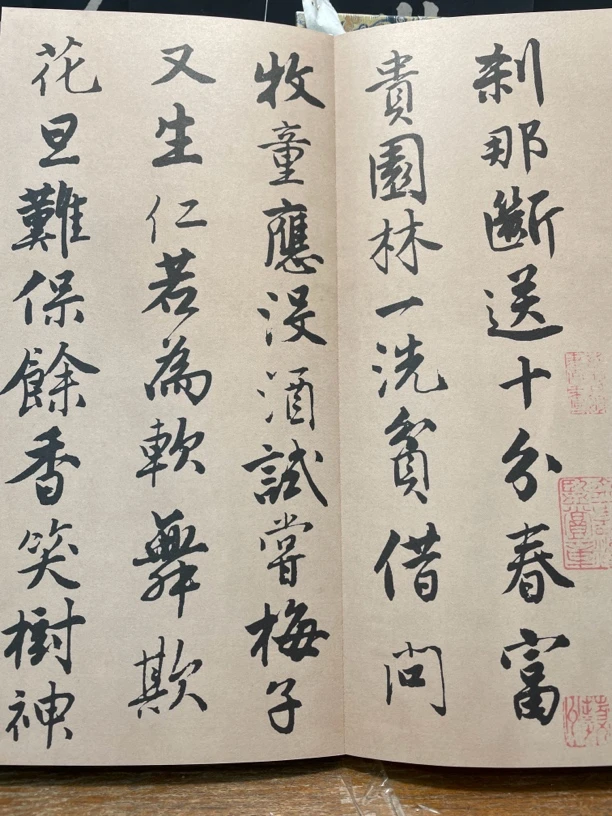 刹那斷送十分春富
貴園林一洗貧借問
牧童應没酒試嘗梅子
又生仁若為軟舞欺
花旦難保餘香笑樹神